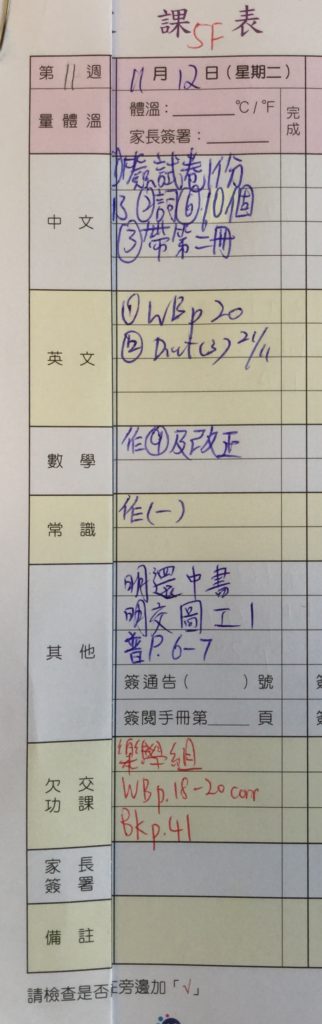 課表
5F
第11週 11月12日(星期二)
量體溫 體溫：______℃/℉ 完成
家長簽署：______
中文 ①簽試卷1份
②詞⑥10個
③帶第二冊
英文 ① WB p 20
② Dict (3) 21/11
數學 作④及改正
常識 作(一)
其他 明還中書
明交圖工1
普P.6-7
簽通告( )號
簽閱手冊第____頁
欠交功課 樂學組
WB p.18-20 corr
Bk p.41
家長簽署
備註
請檢查是否 旁邊加「√」